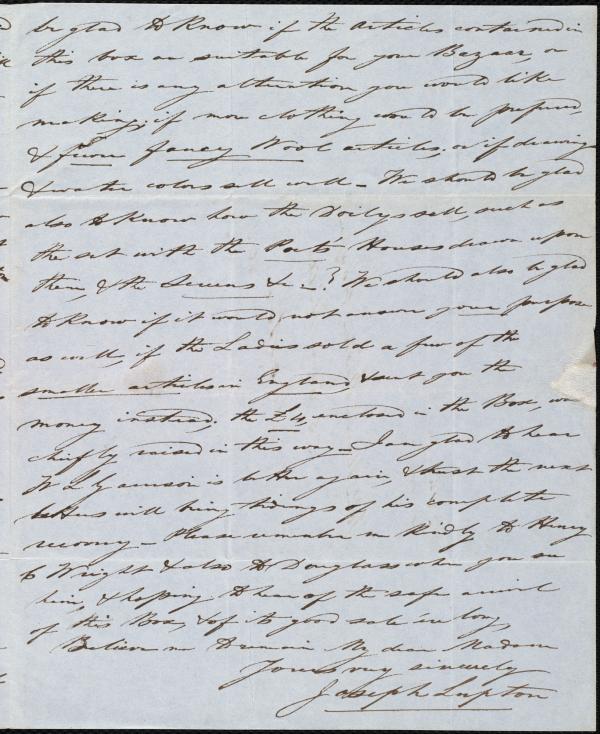 be glad to know if the articles contained in
this box are suitable for your Bazaar, or
if there is any alteration you would like
making; if more clothing would be preferred,
& fewer fancy Wool articles; or if drawings
& water colors sell well – We should be glad
also to know how the Doilys sell, such as
the set with the Poets Houses drawn upon
them, & the &c – ? We should also be glad
to know if it would not answer your purpose
as well, if the Ladies sold a few of the
smaller articles in England, & sent you the
money instead. the £4, enclosed in the Box, was
chiefly raised in this way – I am glad to hear
W L Garrison is better again, & trust the next
letters will bring tidings of his complete
recovery – Please remember me kindly to Henry
C Wright & also to Douglass when you see
him, & hoping to hear of the safe arrival
of this Box, & of its good sale 'ere long,
Believe me to remain My dear Madam
Yours very sincerely
Joseph Lupton